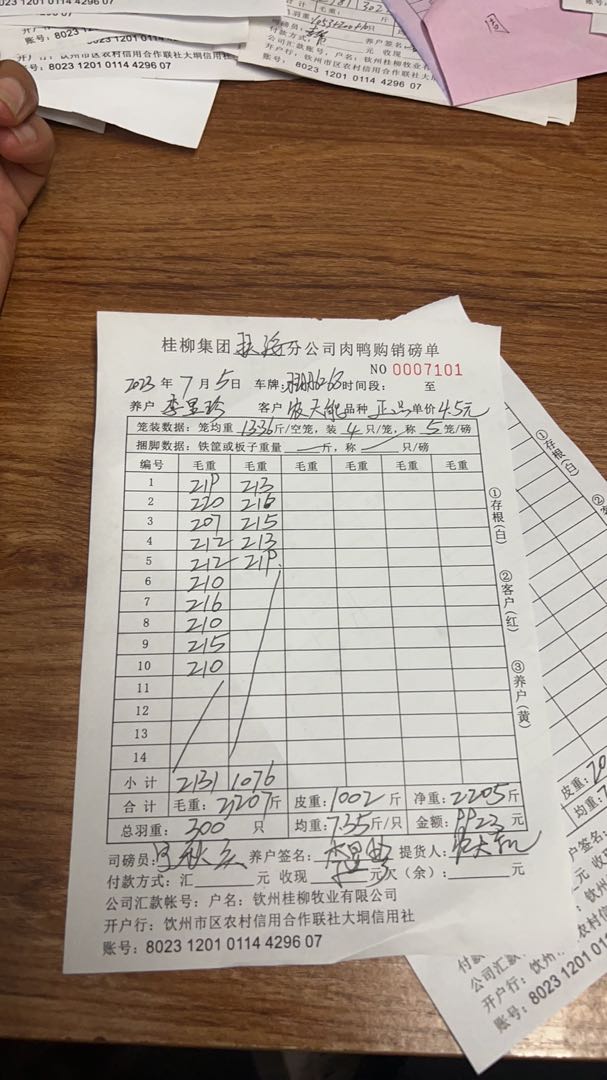 账号: 8023 1201 0114 4296 07
养户签名:
付款方式: 收现
公司汇款帐号: 户名: 钦州桂柳牧业有限公司
开户行: 钦州市区农村信用合作联社大垌信用社
账号: 8023 1201 0114 4296 07
桂柳集团 分公司肉鸭购销磅单
NO 0007101
2023 年 7 月 5 日 车牌: 时间段: 至
养户 客户 品种 正品 单价 4.5元
笼装数据: 笼均重 133.6 斤/空笼, 装 4 只/笼, 称 5 笼/磅
捆脚数据: 铁筐或板子重量 斤, 称 只/磅
编号 毛重 毛重 毛重 毛重 毛重 毛重
1 219 213
2 220 216
3 207 215
4 212 213
5 212 219
6 210
7 216
8 210
9 215
10 210
11
12
13
14
小计 2131 1076
合计 毛重: 3207 斤 皮重: 1002 斤 净重: 2205 斤
总羽重: 300 只 均重: 7.35 斤/只 金额: 9923 元
司磅员: 养户签名: 提货人:
付款方式: 汇 元 收现 元 欠(余): 元
公司汇款帐号: 户名: 钦州桂柳牧业有限公司
开户行: 钦州市区农村信用合作联社大垌信用社
账号: 8023 1201 0114 4296 07
①存根(白)
②客户(红)
③养户(黄)
①存根(白)
皮重:
均重:
公司汇款
开户行: 钦州
账号: 8023 1201 01